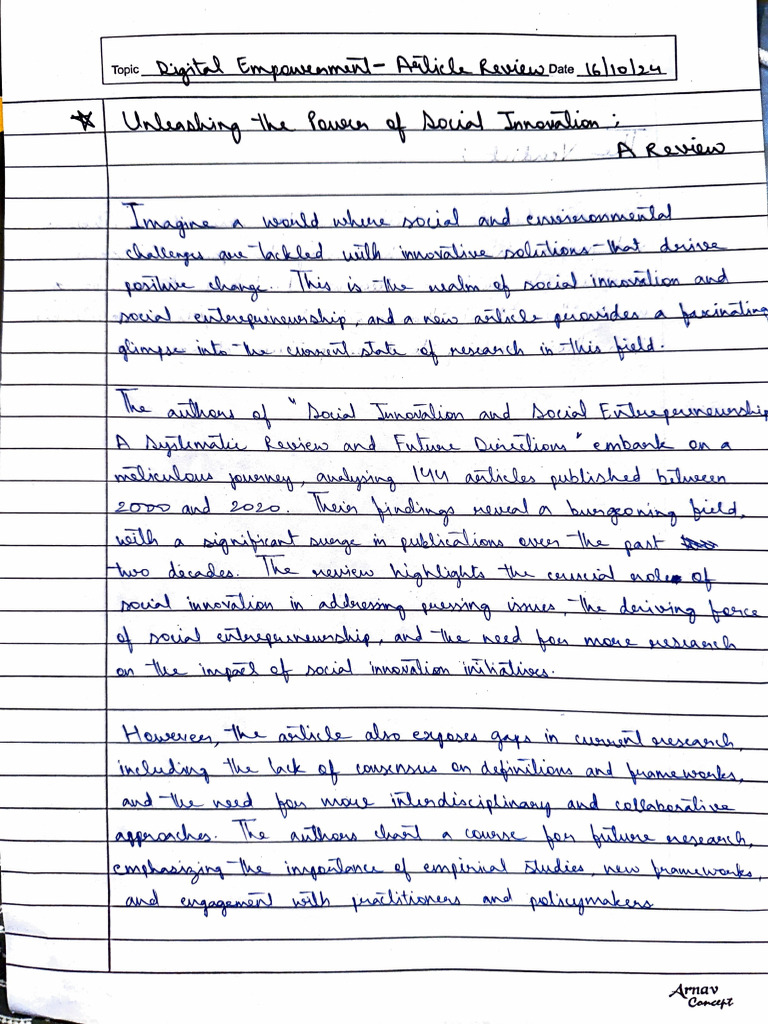 Topic Digital Empowerment - Article Review Date 16/10/24
☆ Unleashing the Power of Social Innovation:
A Review
Imagine a world where social and environmental
challenges are tackled with innovative solutions that derive
positive change. This is the realm of social innovation and
social entrepreneurship, and a new article provides a fascinating
glimpse into the current state of research in this field.
The authors of "Social Innovation and Social Entrepreneurship
A Systematic Review and Future Directions" embark on a
meticulous journey, analysing 144 articles published between
2000 and 2020. Their findings reveal a burgeoning field,
with a significant surge in publications over the past
two decades. The review highlights the crucial role of
social innovation in addressing pressing issues, the deriving force
of social entrepreneurship, and the need for more research
on the impact of social innovation initiatives.
However, the article also exposes gaps in current research,
including the lack of consensus on definitions and frameworks,
and the need for more interdisciplinary and collaborative
approaches. The authors chart a course for future research,
emphasizing the importance of empirical studies, new frameworks,
and engagement with practitioners and policymakers
Arnav
Concept